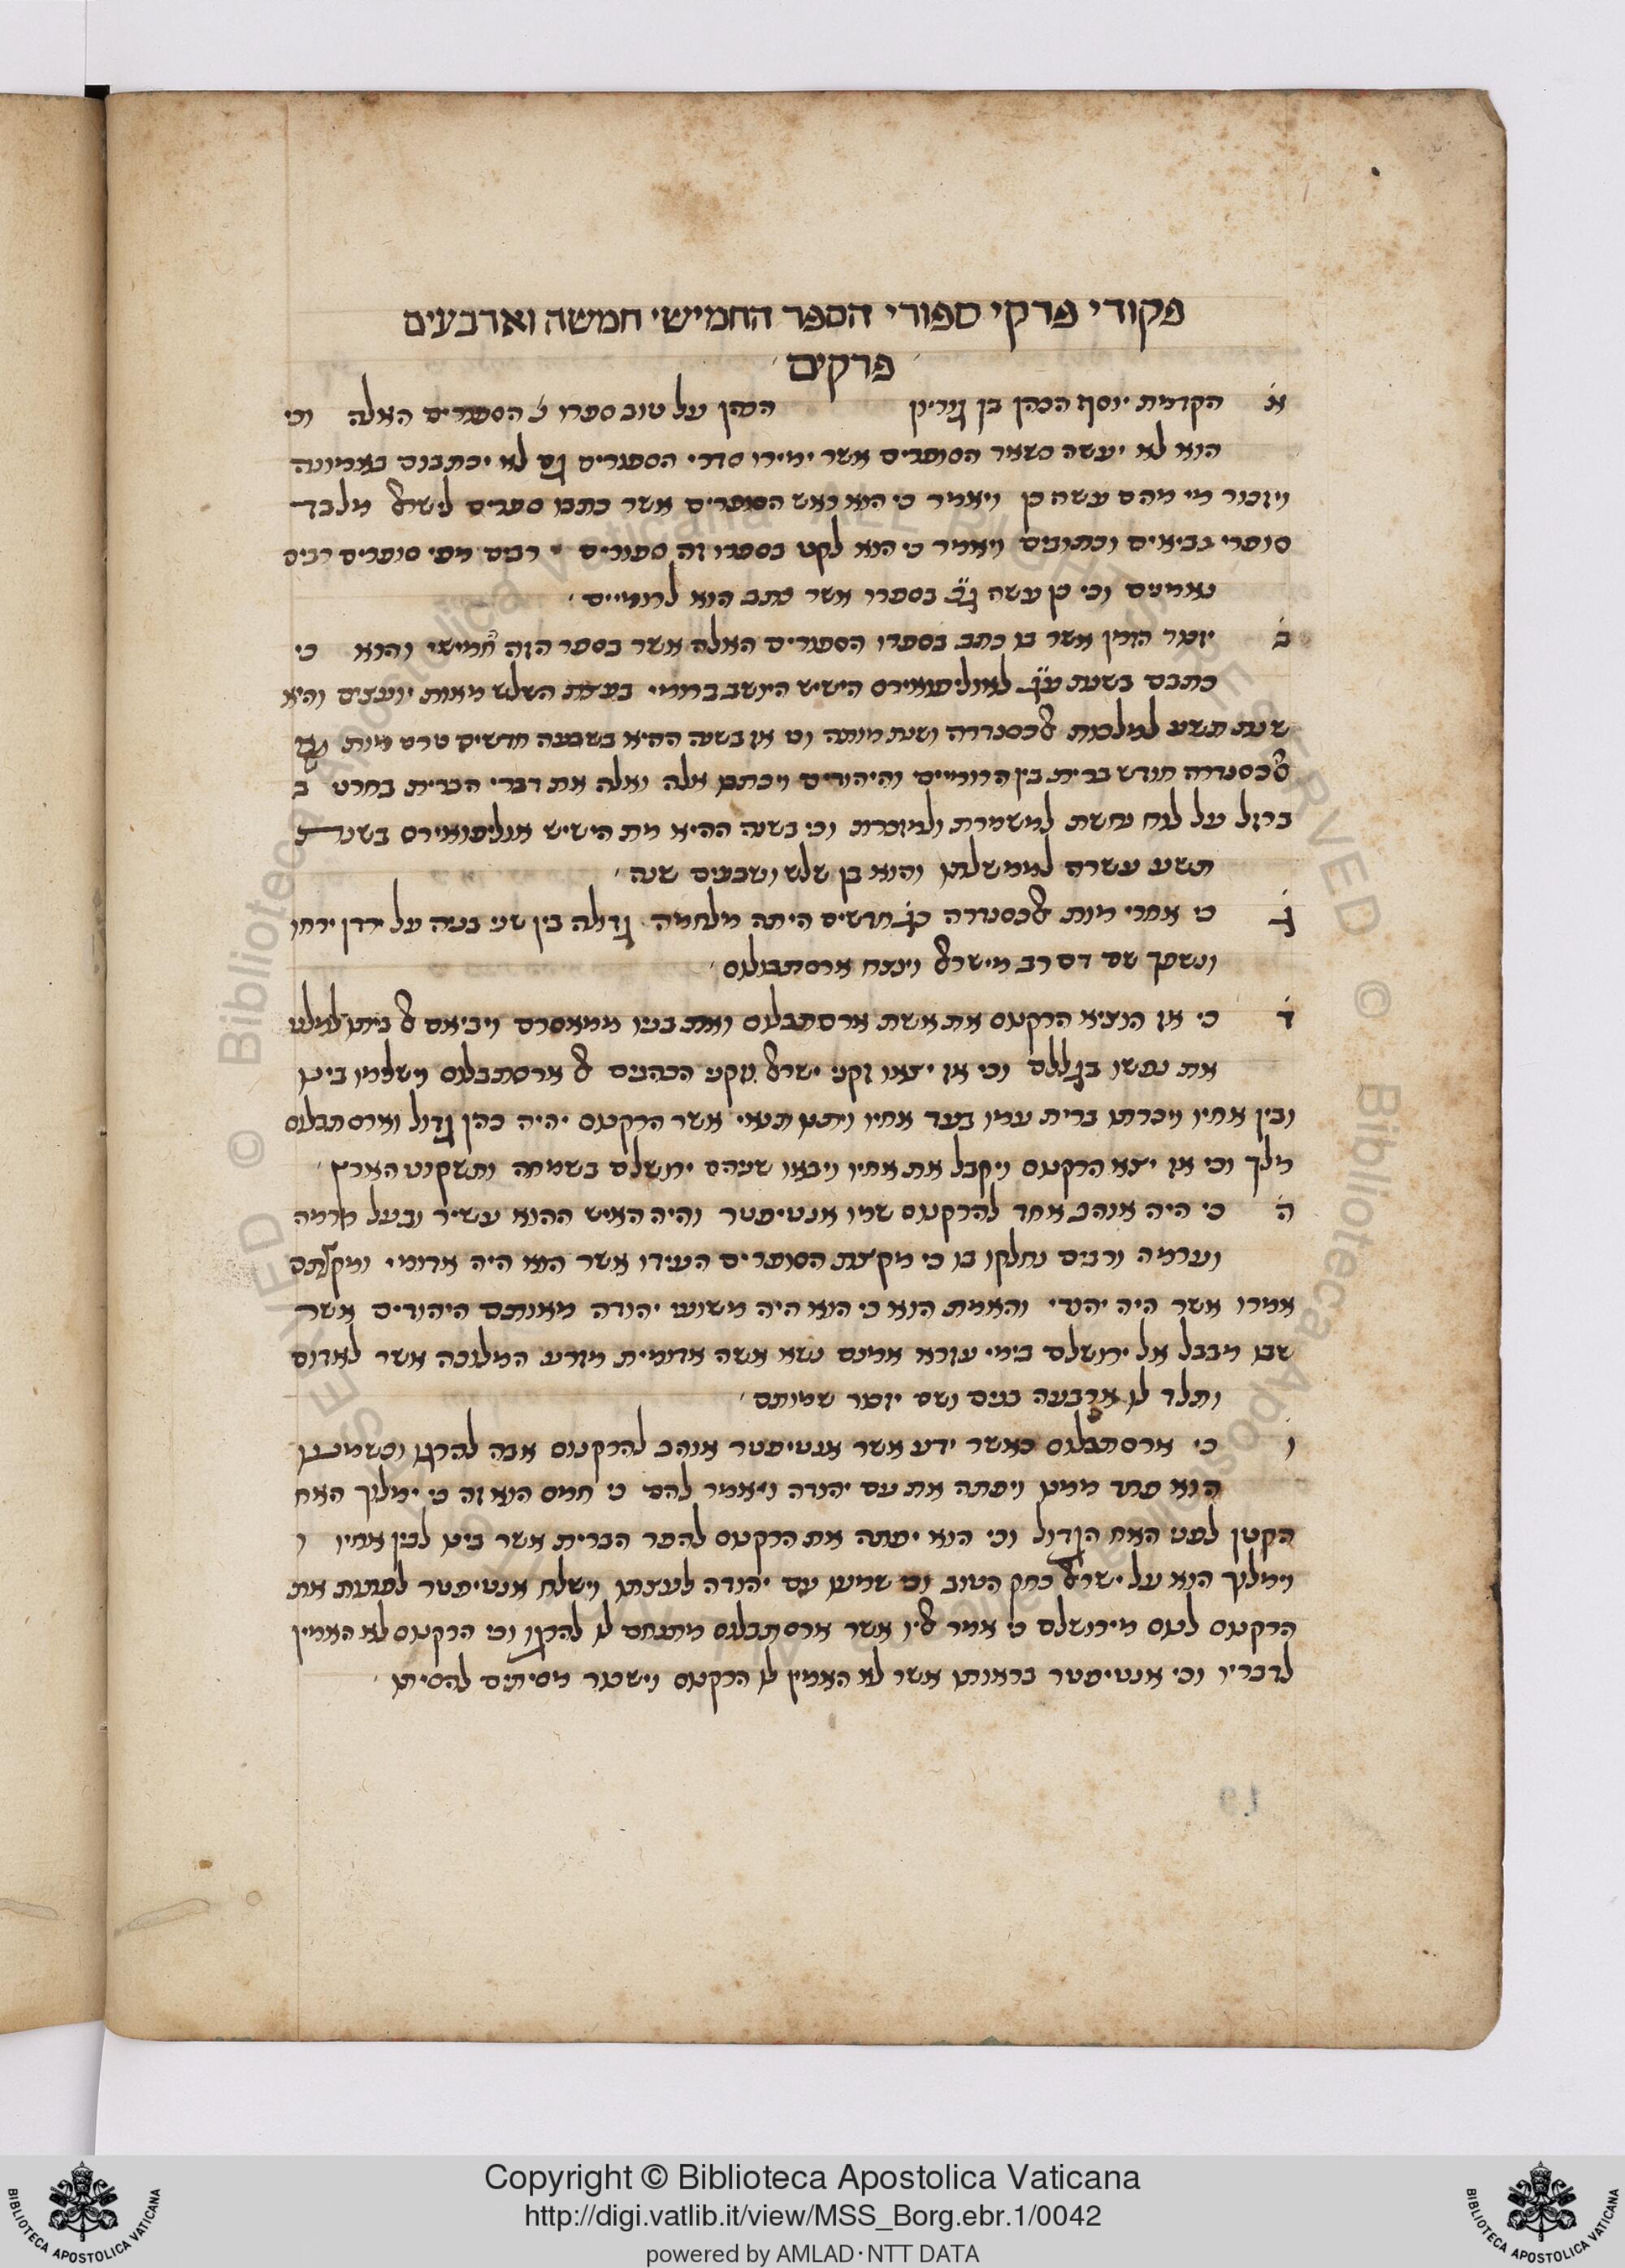 פקודי פרקי ספורי הספר החמישי חמשה וארבעים
פרקים
א הקדמת יוסף הכהן בן גוריון הכהן על טוב ספרו כ הספורים האלה וכי
הוא לא יעשה כשאר הסופרים אשר ימירו סדרי הספורים גם לא יכתבום באמונה
ויזכור מי מהם עשה כן ויאמר כי הוא ראש הסופרים אשר כתבו ספרים לישראל מלבד
סופרי נביאים וכתובים ויאמר כי הוא לקט בספרו זה ספורים רבים מפי סופרים רבים
נאמנים וכי כן עשה גב בספרו אשר כתב הוא לרומיים
ב יזכור הזמן אשר בו כתב בספרו הספורים האלה אשר בספר הזה חמישי והוא כי
כתבם בשנת לאולימפיאדס הישיש היושב ברומי בעצת השלש מאות יועצים והיא
שנת תשע למלכות אלכסנדרה ושנת מותה וכי אז בשנה ההיא בשבעה חדשים טרם מות
אלכסנדרה חודש ברית בין הרומיים והיהודים ויכתבו אלה ואלה את דברי הברית בחרט ב
ברזל על לוח נחשת למשמרת ולמזכרת וכי בשנה ההיא מת הישיש בשנת
תשע עשרה לממשלתו והוא בן שלש ושבעים שנה
ג כי אחרי מות אלכסנדרה חדשים היתה מלחמה גדולה בין שני בניה על ירדן יריחו
ונשפך שם דם רב מישראל וינצח ארסתבלוס
ד כי אז הוציא הרקנוס את אשת ארסתבלוס ואת בניו ממאסרם ויביאם אל ביתו למלט
את נפשו בגללם וכי אז יצאו זקני ישראל וזקני הכהנים אל ארסתבלוס וישלימו בינו
ובין אחיו ויכרתו ברית עמו בעד אחיו ויתנו תנאי אשר הרקנוס יהיה כהן גדול וארסתבלוס
מלך וכי אז יצא הרקנוס ויקבל את אחיו ויבאו שניהם ירושלם בשמחה ותשקוט הארץ
ה כי היה אוהב אחד להרקנוס שמו אנטיפטר והיה האיש ההוא עשיר ובעל מרמה
וערמה ורבים נחלקו בו כי מקצת הסופרים העידו אשר הוא היה אדומי ומקצתם
אמרו אשר היה יהודי והאמת הוא כי הוא היה משועי יהודה מאותם היהודים אשר
שבו מבבל אל ירושלם בימי עזרא אמנם נשא אשה אדומית מזרע המלוכה אשר לאדום
ותלד לו ארבעה בנים ושם יזכור שמותם
ו כי ארסתבלוס כאשר ידע אשר אנטיפטר אוהב להרקנוס אבה להרגו וכשמעו
הוא פחד ממנו ויפתה את עם יהודה ויאמר להם כי חמס הוא זה כי ימלוך האח
הקטן לפני האח הגדול וכי הוא יפתה את הרקנוס להפר הברית אשר בינו לבין אחיו ו
וימלוך הוא על ישראל כחק הטוב וכי שמעו עם יהודה לעצתו וישלח אנטיפטר לפתות את
הרקנוס לנוס מירושלם כי אמר אליו אשר ארסתבלוס מתנחם לו להרגו וכי הרקנוס לא האמין
לדבריו וכי אנטיפטר בראותו אשר לא האמין לו הרקנוס וישכור מסיתים להסיתו
Copyright © Biblioteca Apostolica Vaticana
http://digi.vatlib.it/view/MSS_Borg.ebr.1/0042
powered by AMLAD·NTT DATA